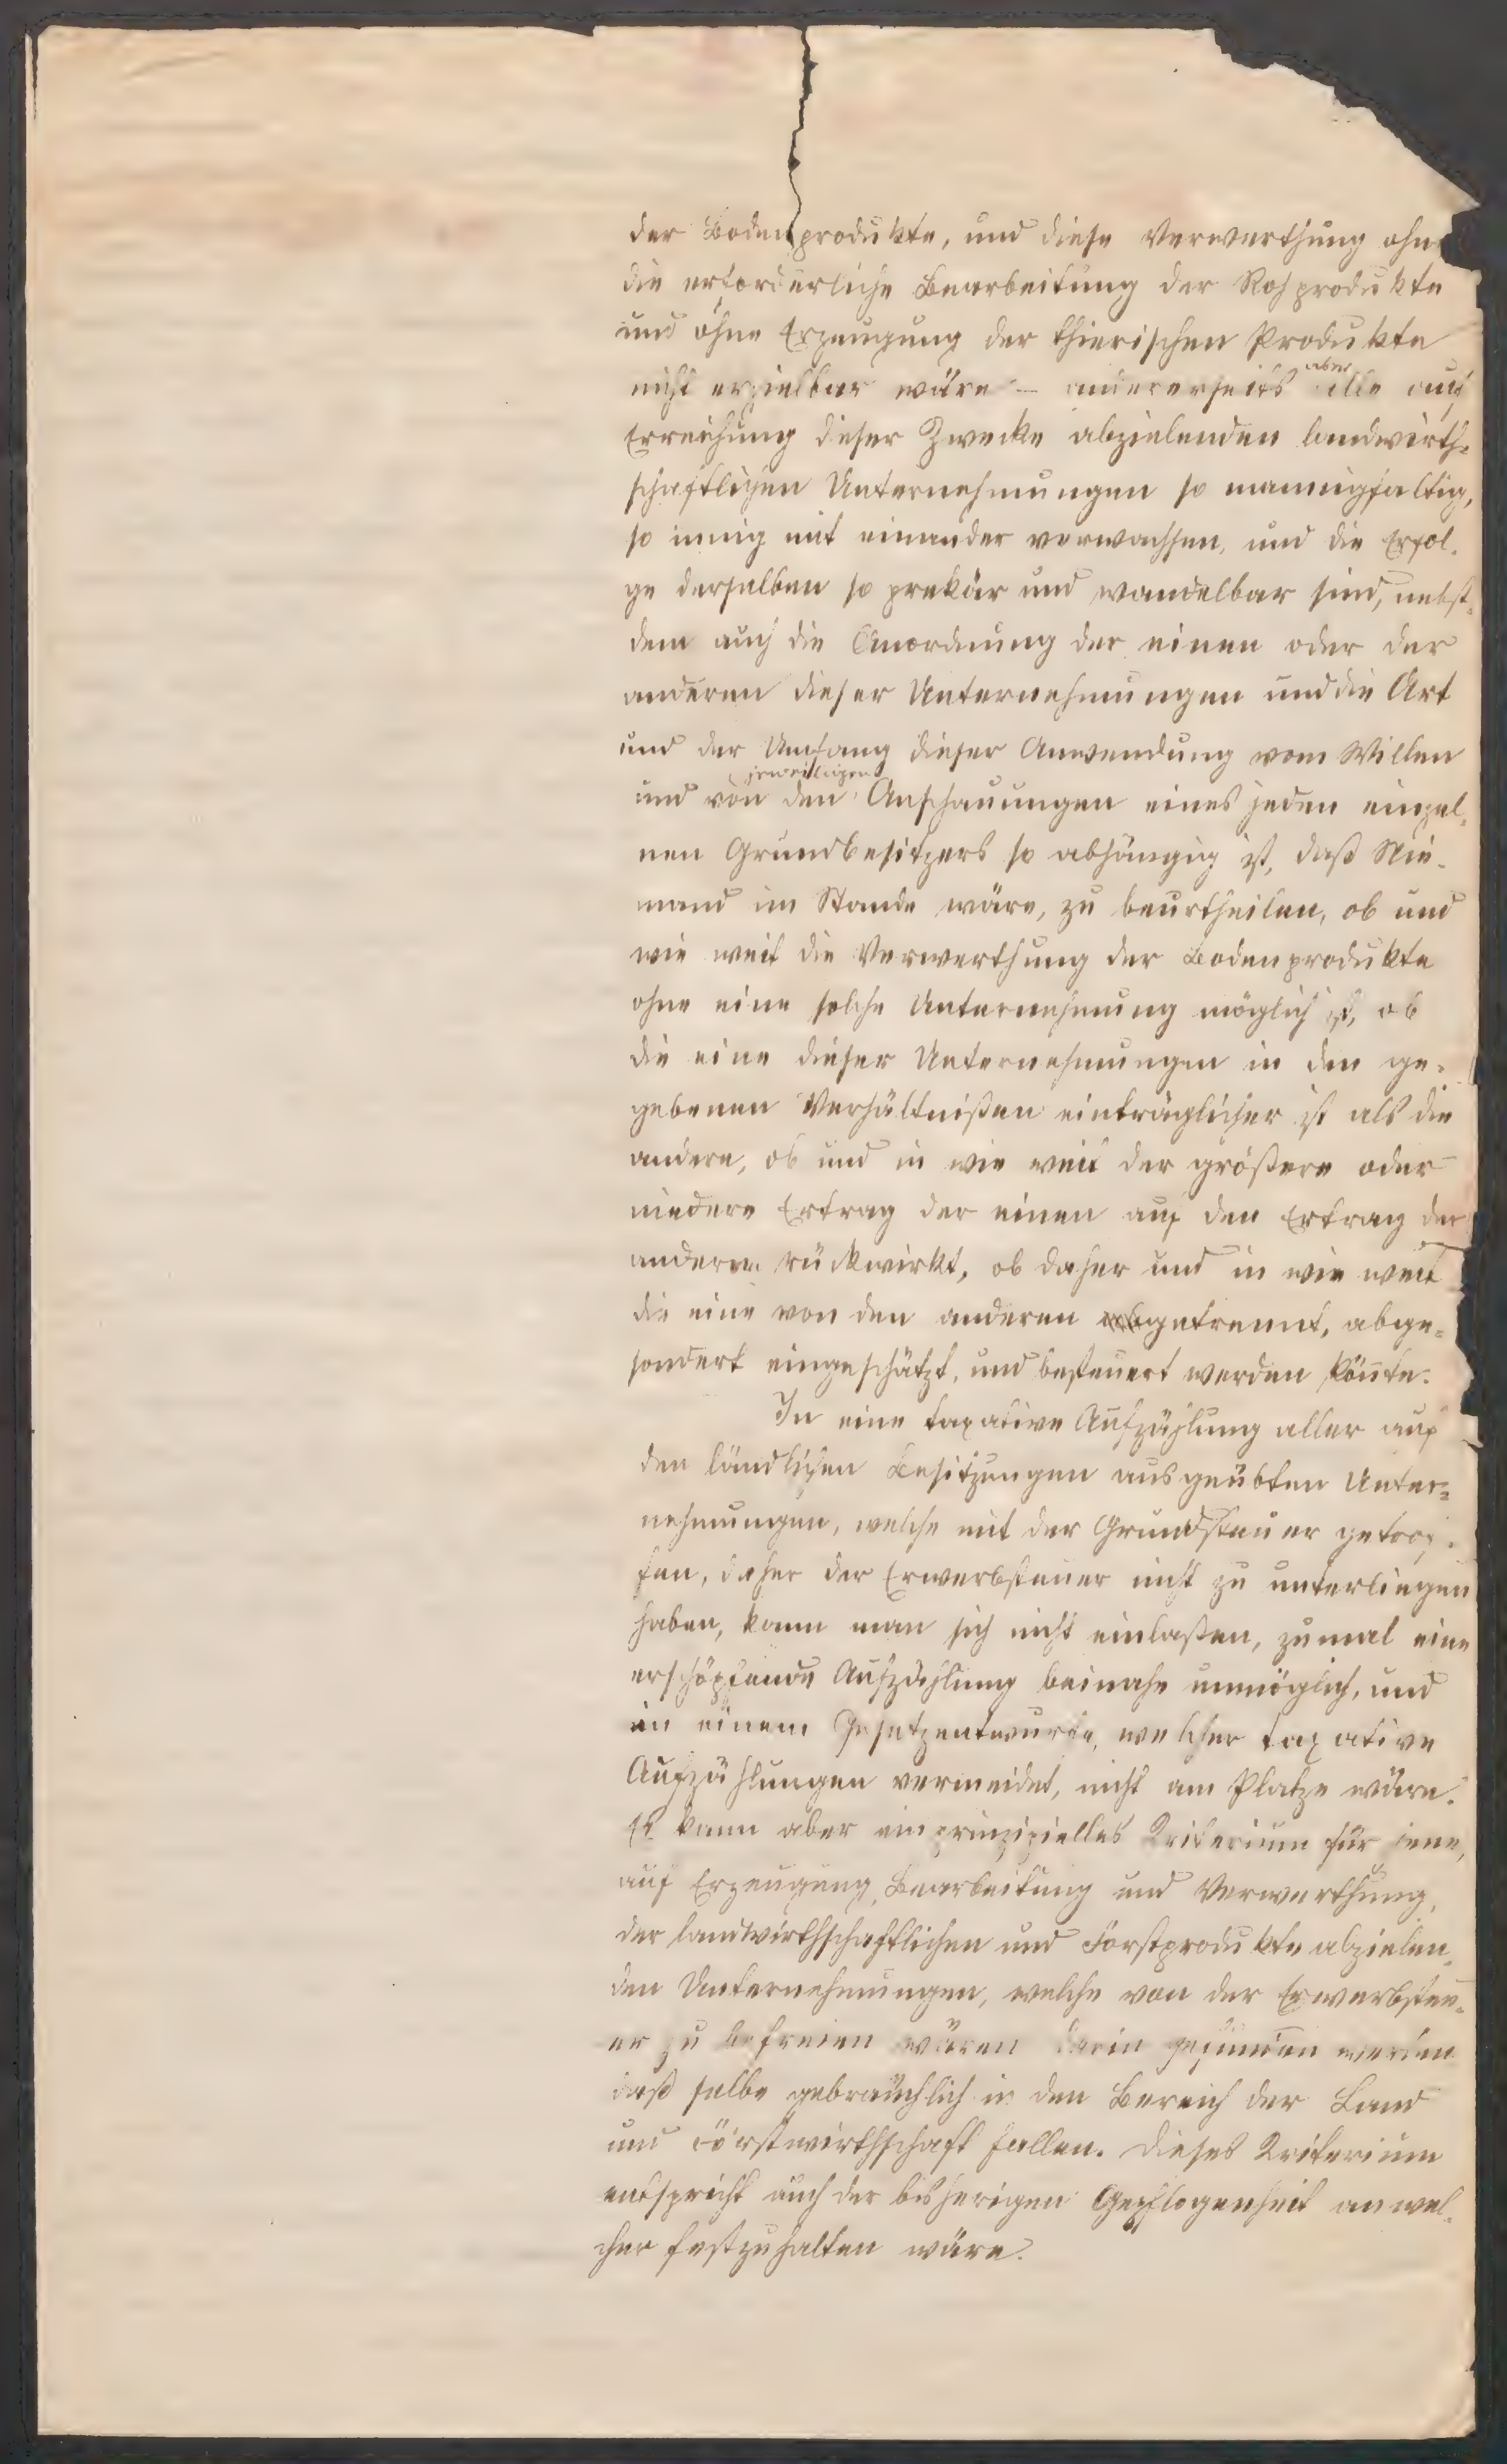 der Bodenprodukte, und diese Verwerthung ohne
die erforderliche Bearbeitung der Rohprodukte
und ohne Erzeugung der thierischen Produkte
nicht erzielbar wäre – andererseits aber alle auf
Erreichung dieser Zwecke abzielenden landwirth-
schaftlichen Unternehmungen so mannigfaltig,
so innig mit einander verwachsen, und die Erfol-
ge derselben so prekär und wandelbar sind, nebst-
dem auch die Anordnung der einen oder der
anderen dieser Unternehmungen und die Art
und der Umfang dieser Anwendung vom Willen
und von den jeweiligen Anschauungen eines jeden einzel-
nen Grundbesitzers so abhängig ist, daß Nie-
mand im Stande wäre, zu beurtheilen, ob und
wie weit die Verwerthung der Bodenprodukte
ohne eine solche Unternehmung möglich ist, ob
die eine dieser Unternehmungen in den ge-
gebenen Verhältnißen einträglicher ist als die
andere, ob und in wie weit der größere oder
niedere Ertrag der einen auf den Ertrag der
anderen rückwirkt, ob daher und in wie weit
die eine von den anderen getrennt, abge-
sondert eingeschätzt, und besteuert werden könnte.
In eine taxative Aufzählung aller auf
den ländlichen Besitzungen ausgeübten Unter-
nehmungen, welche mit der Grundsteuer getrof-
fen, daher der Erwerbsteuer nicht zu unterliegen
haben, kann man sich nicht einlaßen, zumal eine
erschöpfende Aufzählung beinahe unmöglich, und
in einem Gesetzentwurfe, welcher taxative
Aufzählungen vermeidet, nicht am Platze wäre.
Es kann aber ein prinzipielles Kriterium für jene,
auf Erzeugung, Bearbeitung und Verwerthung,
der landwirthschaftlichen und Forstprodukte abzielen-
den Unternehmungen, welche von der Erwerbsteu-
er zu befreien wären darin gefunden werden
daß selbe gebräuchlich in den Bereich der Land
und Forstwirthschaft fallen. Dieses Kriterium
entspricht auch der bisherigen Gepflogenheit an wel-
cher festzuhalten wäre.